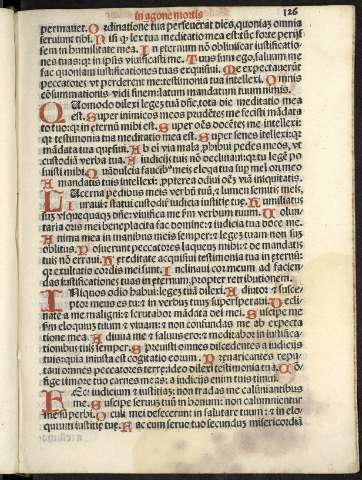 in agone mortis
126
permanet. Ordinatione tua perseuerat dies, quoniaz omnia
seruiunt tibi. Nisi ꝙ lex tua meditatio mea est: tūc forte perijs
sem in humilitate mea. In eternum nō obliuiscar iustificatio
nes tuas: qr in ipsis viuificasti me. Tuus sum ego, saluum me
fac quoniam iustificationes tuas exquisiui. Me expectauerūt
peccatores vt perderent me: testimonia tua intellexi. Omnis
cōsummationis vidi finem: latum mandatum tuum nimis.
Quomodo dilexi legez tuā dn̄e, tota die meditatio mea
est. Super inimicos meos prudētez me fecisti mādā
to tuo: qr in eternū mihi est. Super oēs docētes me intellexi:
qr testimonia tua meditatio mea est. Super senes itellexi: qr
mādata tua quesiui. Ab oi via mala ꝓhibui pedes meos, vt
custodiā verba tua. A iudicijs tuis nō declinaui: qr tu legē po
suisti mihi. Quā dulcia faucibꝰ meis eloqa tua suꝑ mel ori meo
A mandatis tuis intellexi: ꝓpterea odiui oēz viā iniqtatis.
Lucerna pedibus meis verbū tuū, et lumen semitis meis,
Iuraui: et statui custodire iudicia iusticie tue. Humiliatus
suz vsquequaqz dn̄e: viuifica me fm verbum tuum. Volun/
taria oris mei beneplacita fac domine: et iudicia tua doce me.
Anima mea in manibus meis semper: et legez tuam non suz
oblitus. Posuerunt peccatores laqueuz mihi: et de mandatis
tuis nō erraui. Hereditate acquisiui testimonia tua in eternū:
qr exultatio cordis mei sunt. Inclinaui cor meum ad facien
das iustificationes tuas in eternum, propter retributionem.
Iniquos odio habui: et legez tuā dilexi. Adiutor et susce/
ptor meus es tu: et in verbuz tuus supersperaui. Decli
nate a me maligni: et scrutabor mādata dei mei. Suscipe me
fm eloquiuz tuum et viuam: et non confundas me ab expecta
tione mea. Adiuua me et saluus ero: et meditabor in iustifica
tionibus tuis semper. Spreuisti omnes discedentes a iudicijs
tuis: quia iniusta est cogitatio eorum. Preuaricantes repu/
taui omnes peccatores terre: ideo dilexi testimonia tua. Cō/
fige timore tuo carnes meas: a iudicijs enim tuis timui.
Feci iudicium et iustitiaz: non tradas me calūniantibus
me. Suscipe seruuz tuū in bonum: non calumnientur
me superbi. Oculi mei defecerunt in salutare tuum: et in elo
quium iustitie tue. Fac cum seruo tuo secunduz misericordiā